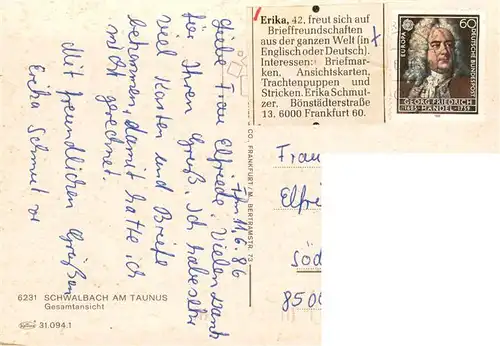 Ffm 11.6.86
Liebe Frau Elfriede. Vielen Dank
für Ihren Gruß. Ich habe sehr
viel Karten und Briefe
bekommen, damit hatte ich
nicht gerechnet.
Mit freundlichen Grüßen
Erika Schmutzer
6231 SCHWALBACH AM TAUNUS
Gesamtansicht
31.094.1
CO. FRANKFURT/M. BERTRAMSTR. 73
Erika, 42, freut sich auf
Brieffreundschaften
aus der ganzen Welt (in
Englisch oder Deutsch).
Interessen: Briefmar-
ken, Ansichtskarten,
Trachtenpuppen und
Stricken. Erika Schmut-
zer. Bönstädterstraße
13. 6000 Frankfurt 60.
EUROPA
60
DEUTSCHE BUNDESPOST
GEORG FRIEDRICH
1685 HÄNDEL 1759
Frau
Elfri
Söd
8500